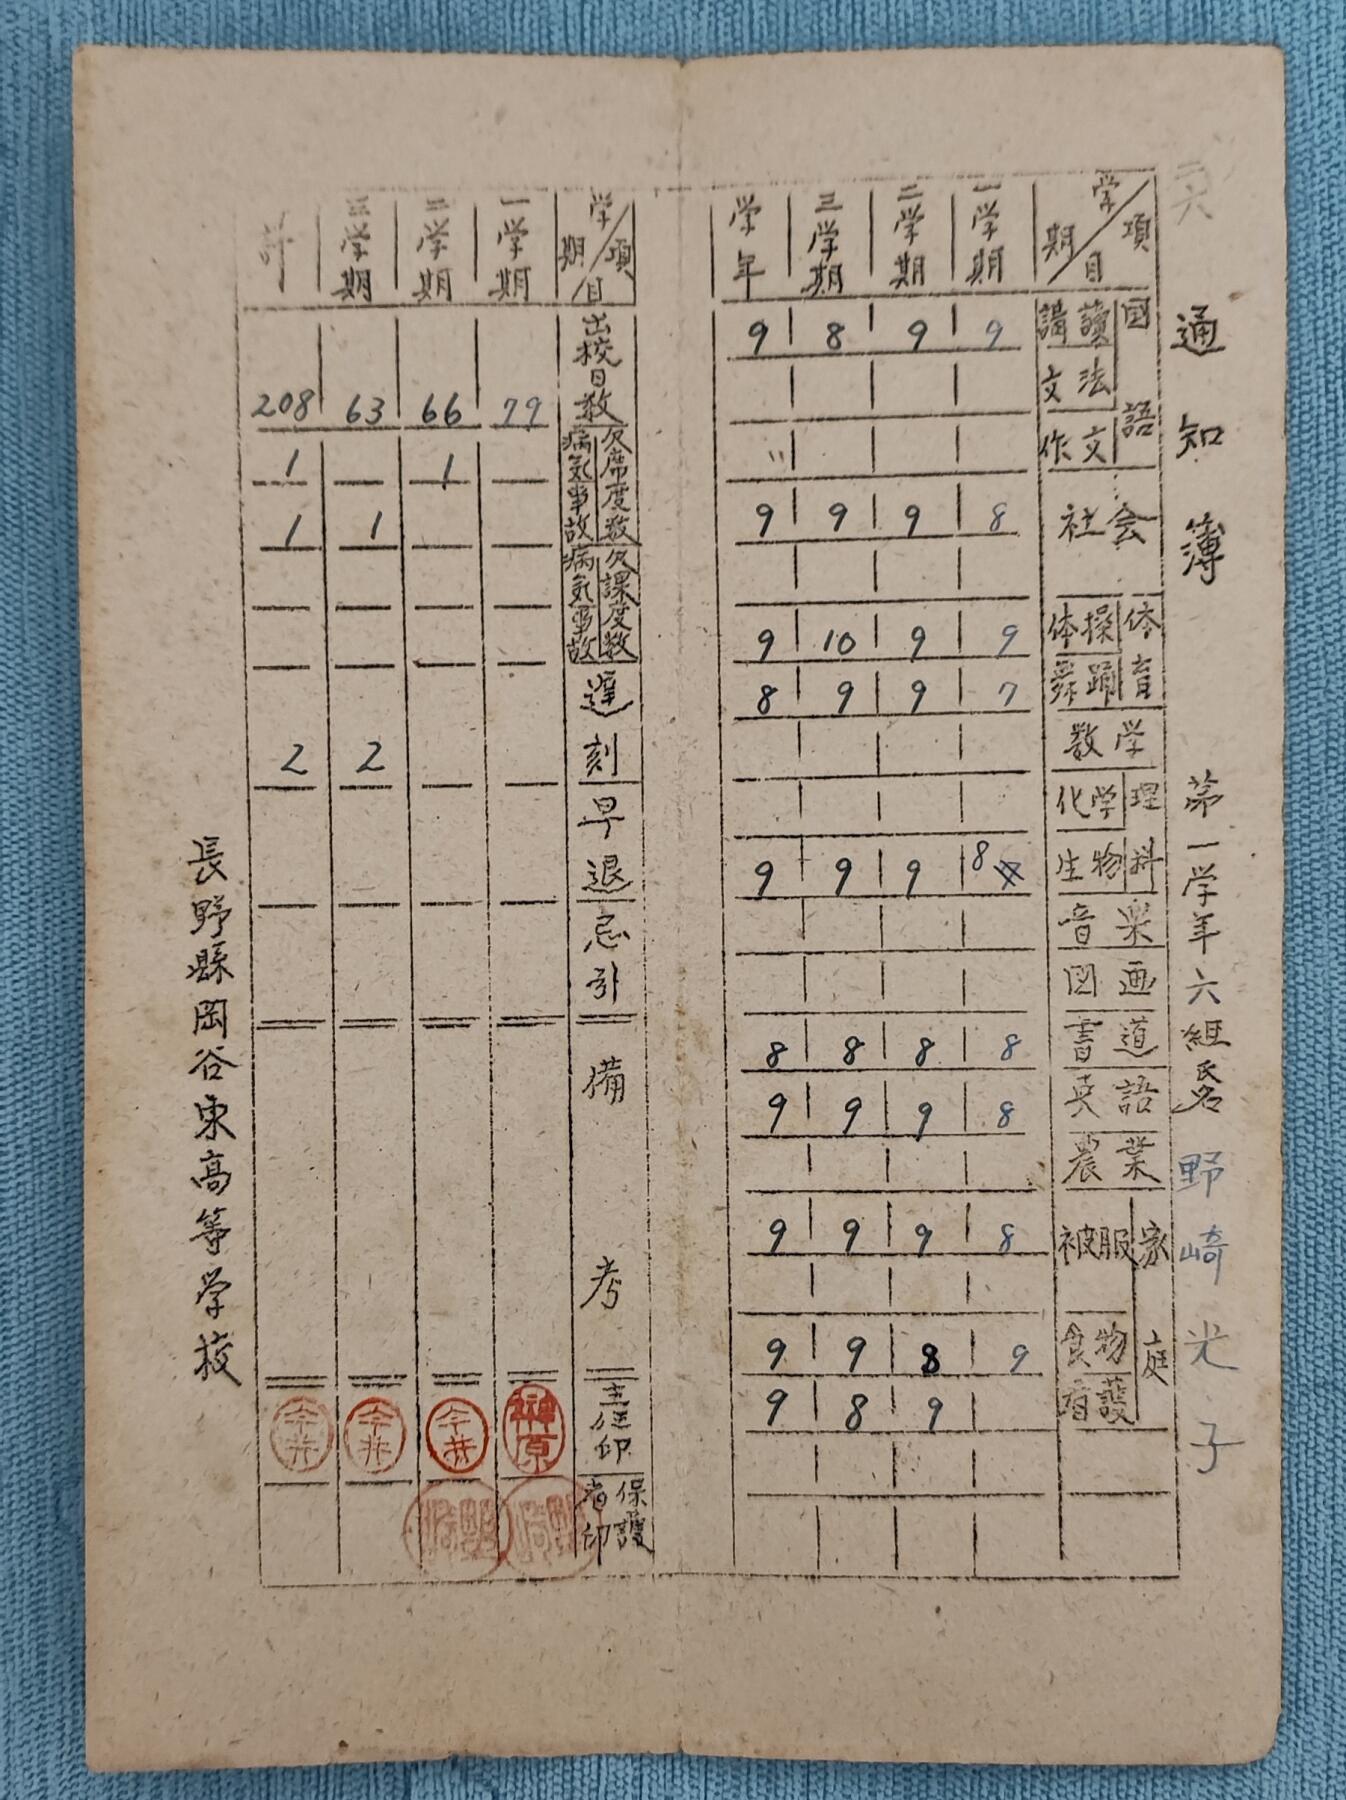 通知簿 第一学年六組 氏名 野崎光子
学期/項目 一学期 二学期 三学期 学年
国語 講讀 9 9 8 9
文法
作文
社会 8 9 9 9
体育 体操 9 9 10 9
舞踊 7 9 9 8
数学
理科 化学
生物 8 9 9 9
音楽
図画
書道 8 8 8 8
英語 8 9 9 9
農業
家庭 被服 8 9 9 9
食物 9 8 9 9
看護 9 8 9
学期/項目 一学期 二学期 三学期 計
出校日数 79 66 63 208
欠席度数 病気 1 1
事故 1 1
欠課度数 病気
事故
遅刻 2 2
早退
忌引
備考
主任印 榊原 今井 今井 今井
保護者印 野崎 野崎
長野縣岡谷東高等学校